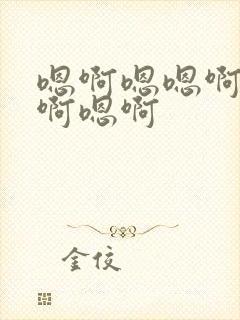 嗯啊嗯嗯啊
啊嗯啊
金佼